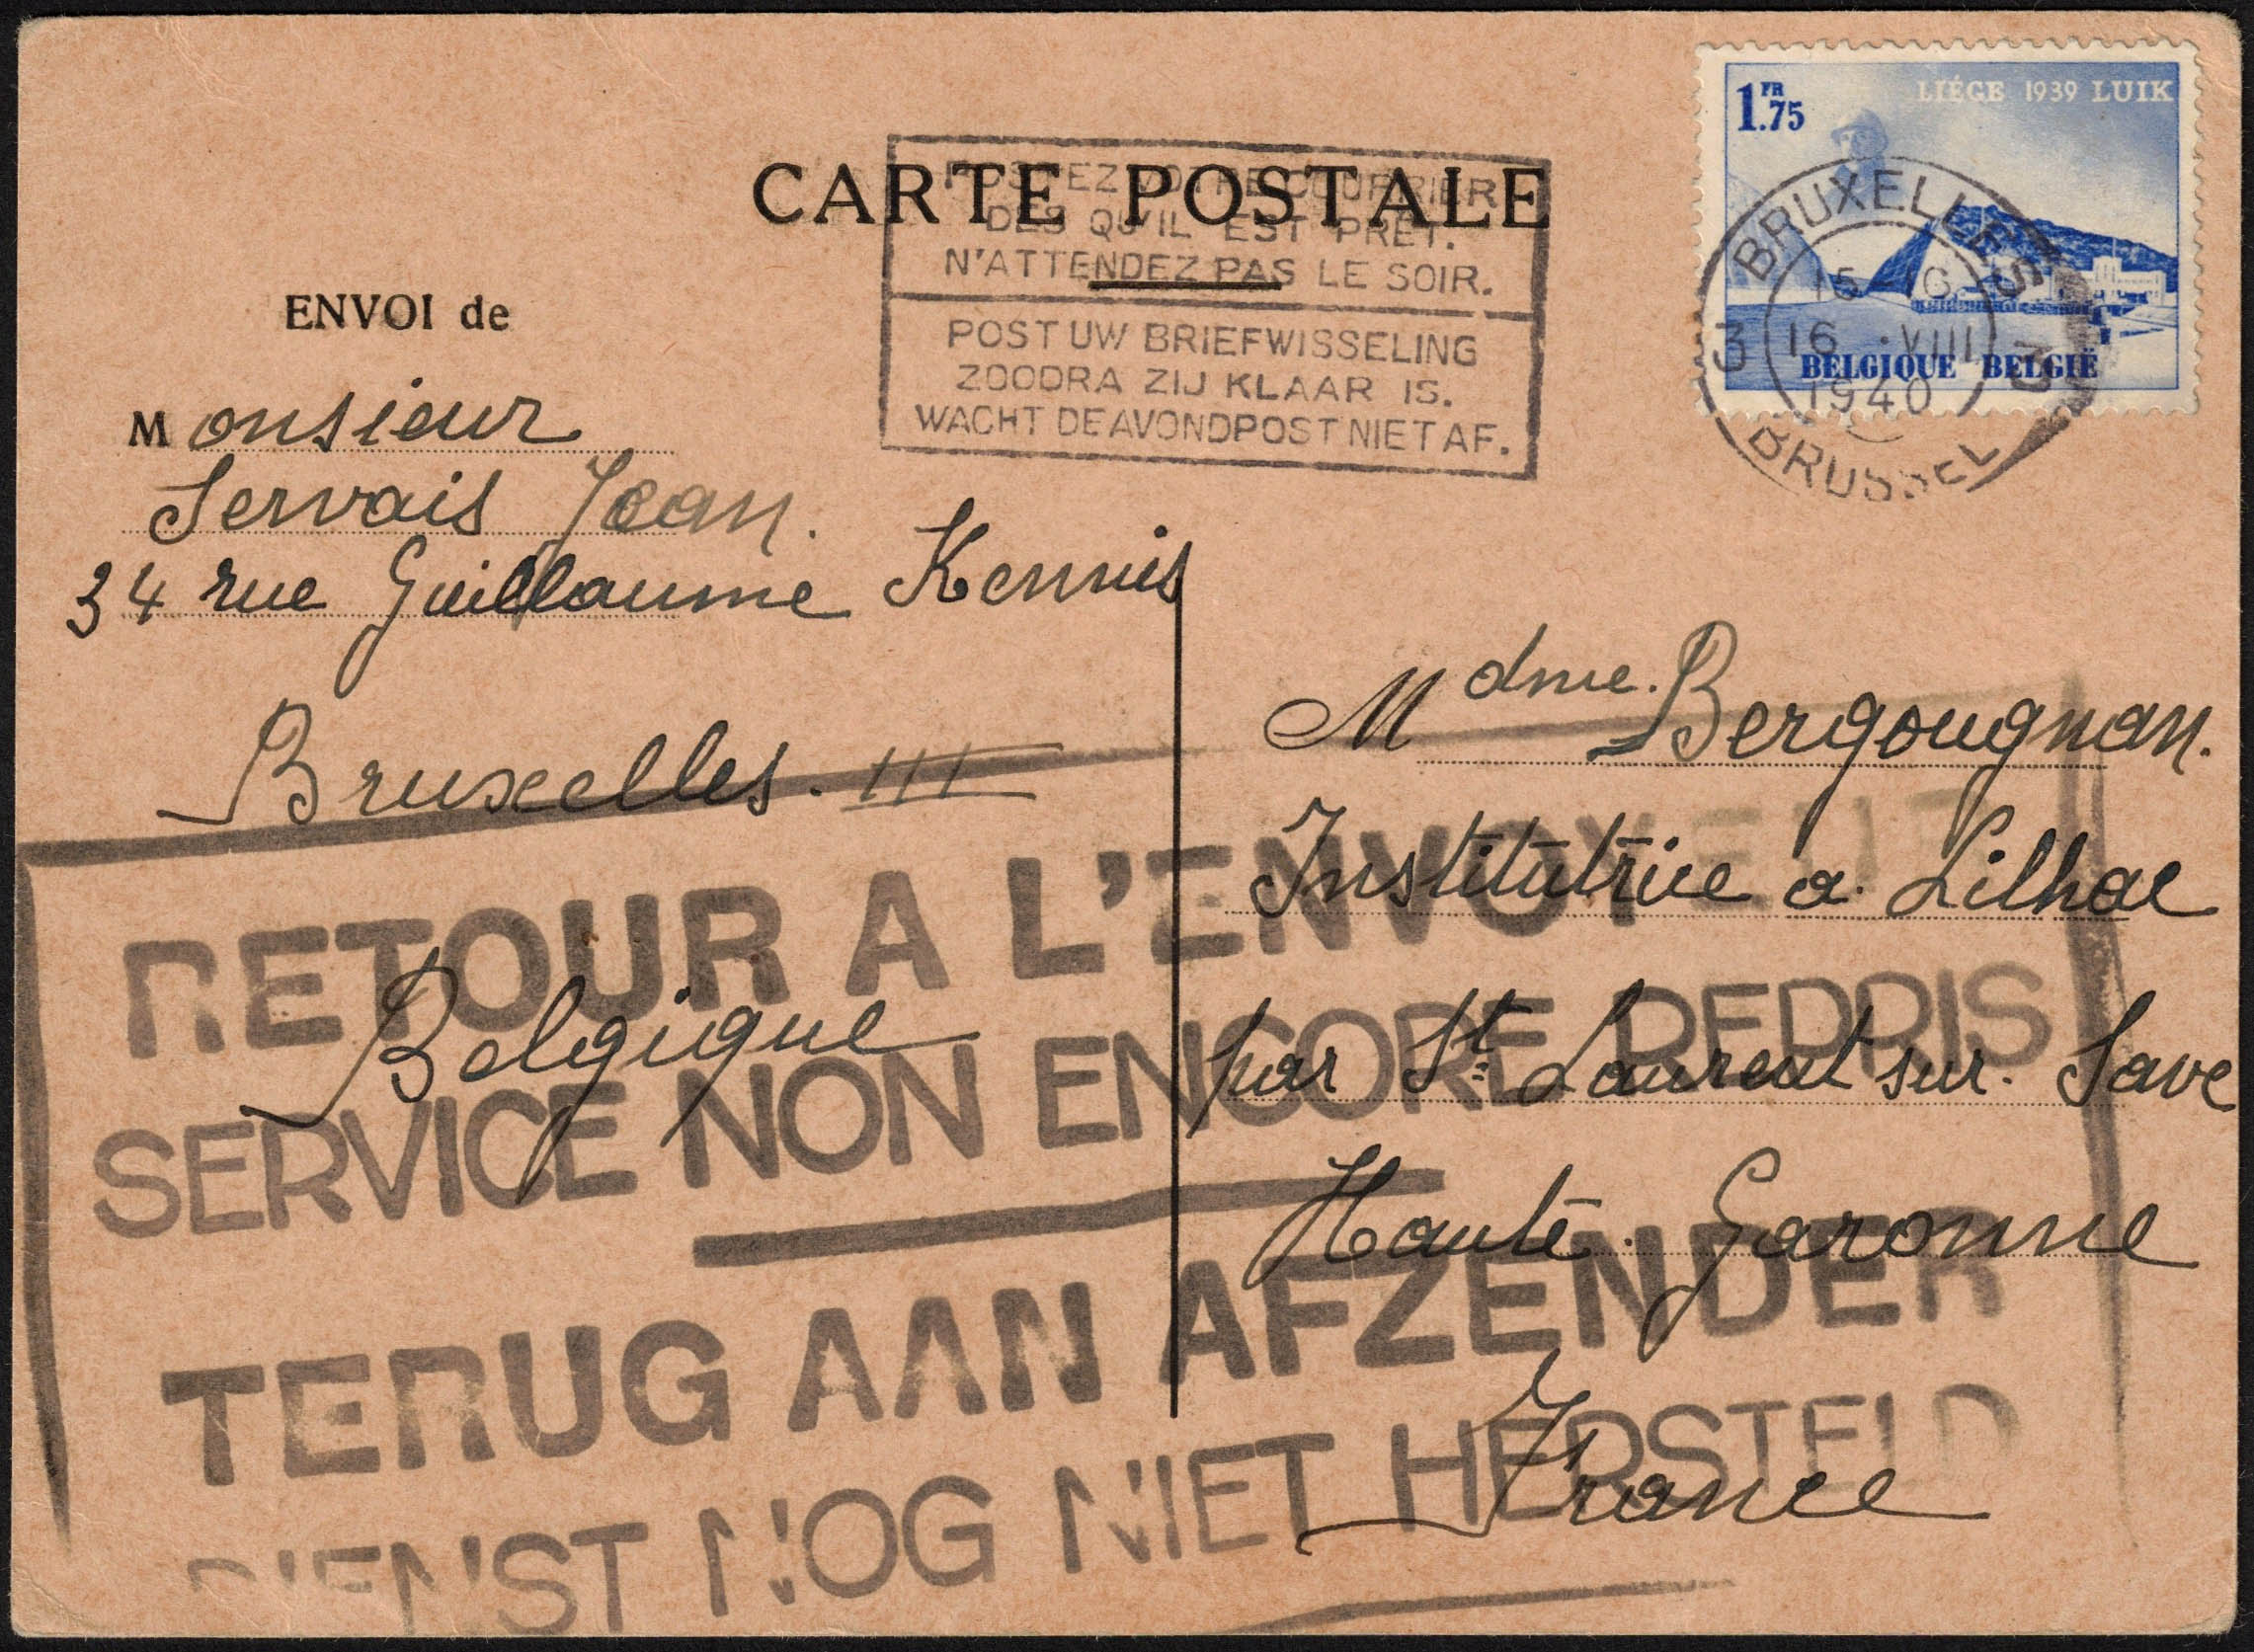 CARTE POSTALE
POSTEZ VOTRE COURRIER
DÈS QU'IL EST PRÊT.
N'ATTENDEZ PAS LE SOIR.
POST UW BRIEFWISSELING
ZOODRA ZIJ KLAAR IS.
WACHT DE AVONDPOST NIET AF.
1 FR .75
LIÉGE 1939 LUIK
BELGIQUE BELGIË
BRUXELLES
3 3
16 VIII
1940
BRUSSEL
ENVOI de
Monsieur
Servais Jean.
34 rue Guillaume Kennis
Bruxelles. III
Belgique
Mdme. Bergougnan.
Institutrice a. Lilhac
par St. Laurent sur. Save
Haute. Garonne
France
RETOUR A L'ENVOYEUR
SERVICE NON ENCORE REPRIS
TERUG AAN AFZENDER
DIENST NOG NIET HERSTELD